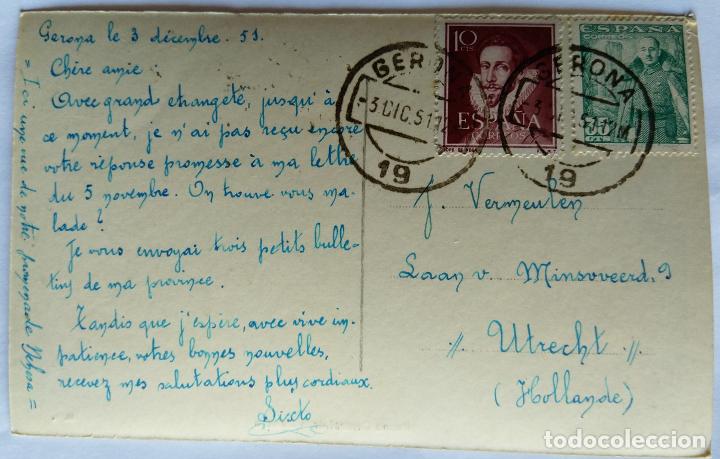 Gerona le 3 décembre. 51.
Chère amie:
Avec grand etrangeté, jusqu'à
ce moment, je n'ai pas reçu encore
votre réponse promesse à ma lettre
du 5 novembre. On trouve vous ma-
lade?
Je vous envoyai trois petits bulle-
tins de ma province.
Tandis que j'espère, avec vive im-
patience, votres bonnes nouvelles,
recevez mes salutations plus cordiaux.
Sixto
= Ici une vue de notre promenade Dehesa =
10
CTS
ESPAÑA
CORREOS
ESPAÑA
CORREOS
GERONA
-3 DIC. 51
19
GERONA
19
J. Vermeulen
Laan v. Minsoveerd, 9
" Utrecht "
(Hollande)
todocoleccion
todocoleccion.net